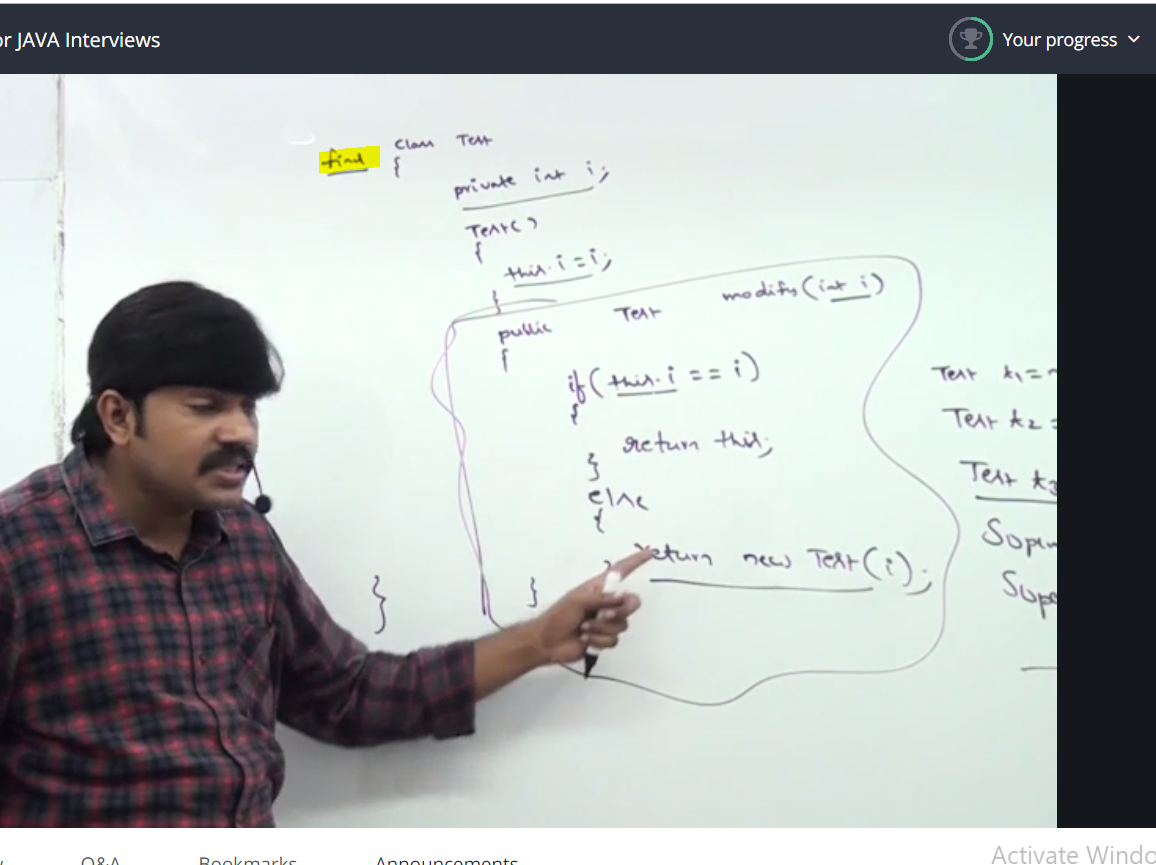 or JAVA Interviews
Your progress
final class Test
{
private int i;
Test()
{
this.i = i;
}
public Test modify(int i)
{
if(this.i == i)
{
return this;
}
else
{
return new Test(i);
}
}
}
Test t1 =
Test t2 =
Test t3
Q&A
Bookmarks
Announcements
Activate Windo